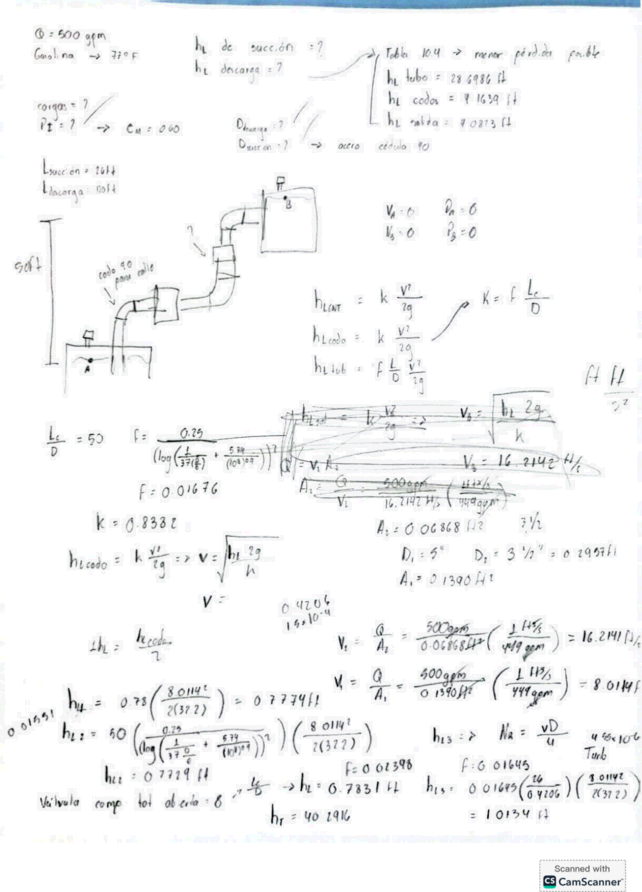 Q = 500 gpm
Gasolina → 77°F
hL de succión = ?
hL descarga = ?
Tabla 10.4 → menor pérdida posible
hL tubo = 28.6986 ft
hL codos = 4.1639 ft
hL salida = 4.0823 ft
cargas = ?
PI = ? → CM = 0.60
Ddescarga = ?
Dsucción = ? → acero cédula 40
Lsucción = 26 ft
Ldescarga = 110 ft
B
VA = 0 PA = 0
VB = 0 PB = 0
50 ft
?
codo 90
para calle
A
hL ENT = k v²/2g
hL codo = k v²/2g
K = f Le/D
hL tub = f L/D v²/2g
ft ft
Le/D = 50
f = 0.25/(log(1/3.7(D/ε) + 5.74/(NR)^0.9))²
V2 = √(hL 2g/k)
V2 = 16.2142 ft/s
f = 0.01676
A2 = Q/V2 = 500gpm/16.2142 ft/s (1 ft³/s/449gpm)
k = 0.8382
A2 = 0.06868 ft² 3 1/2
hL codo = k v²/2g => v = √(hL 2g/k)
D1 = 5" D2 = 3 1/2" = 0.2957 ft
A1 = 0.1390 ft²
V =
0.4206
1.5x10^-4
V2 = Q/A2 = 500gpm/0.06868 ft² (1 ft³/s/449 gpm) = 16.2141 ft/s
V1 = Q/A1 = 500gpm/0.1390 ft² (1 ft³/s/449gpm) = 8.0114 ft/s
hL1 = 0.78 (8.0114²/2(32.2)) = 0.7774 ft
0.01551
hL2 = 50 (0.25/(log(1/3.7 D/ε + 5.74/(NR)^0.9))²) (8.0114²/2(32.2))
hL3 => NR = vD/
Turb
hL2 = 0.7729 ft
f = 0.02398
f = 0.01645
Válvula comp tot abierta = 8 Le/D → hL = 0.7831 ft
hL3 = 0.01645 (26/0.4206) (8.0114²/2(32.2))
hT = 40.2916
= 1.0134 ft
Scanned with
CS CamScanner